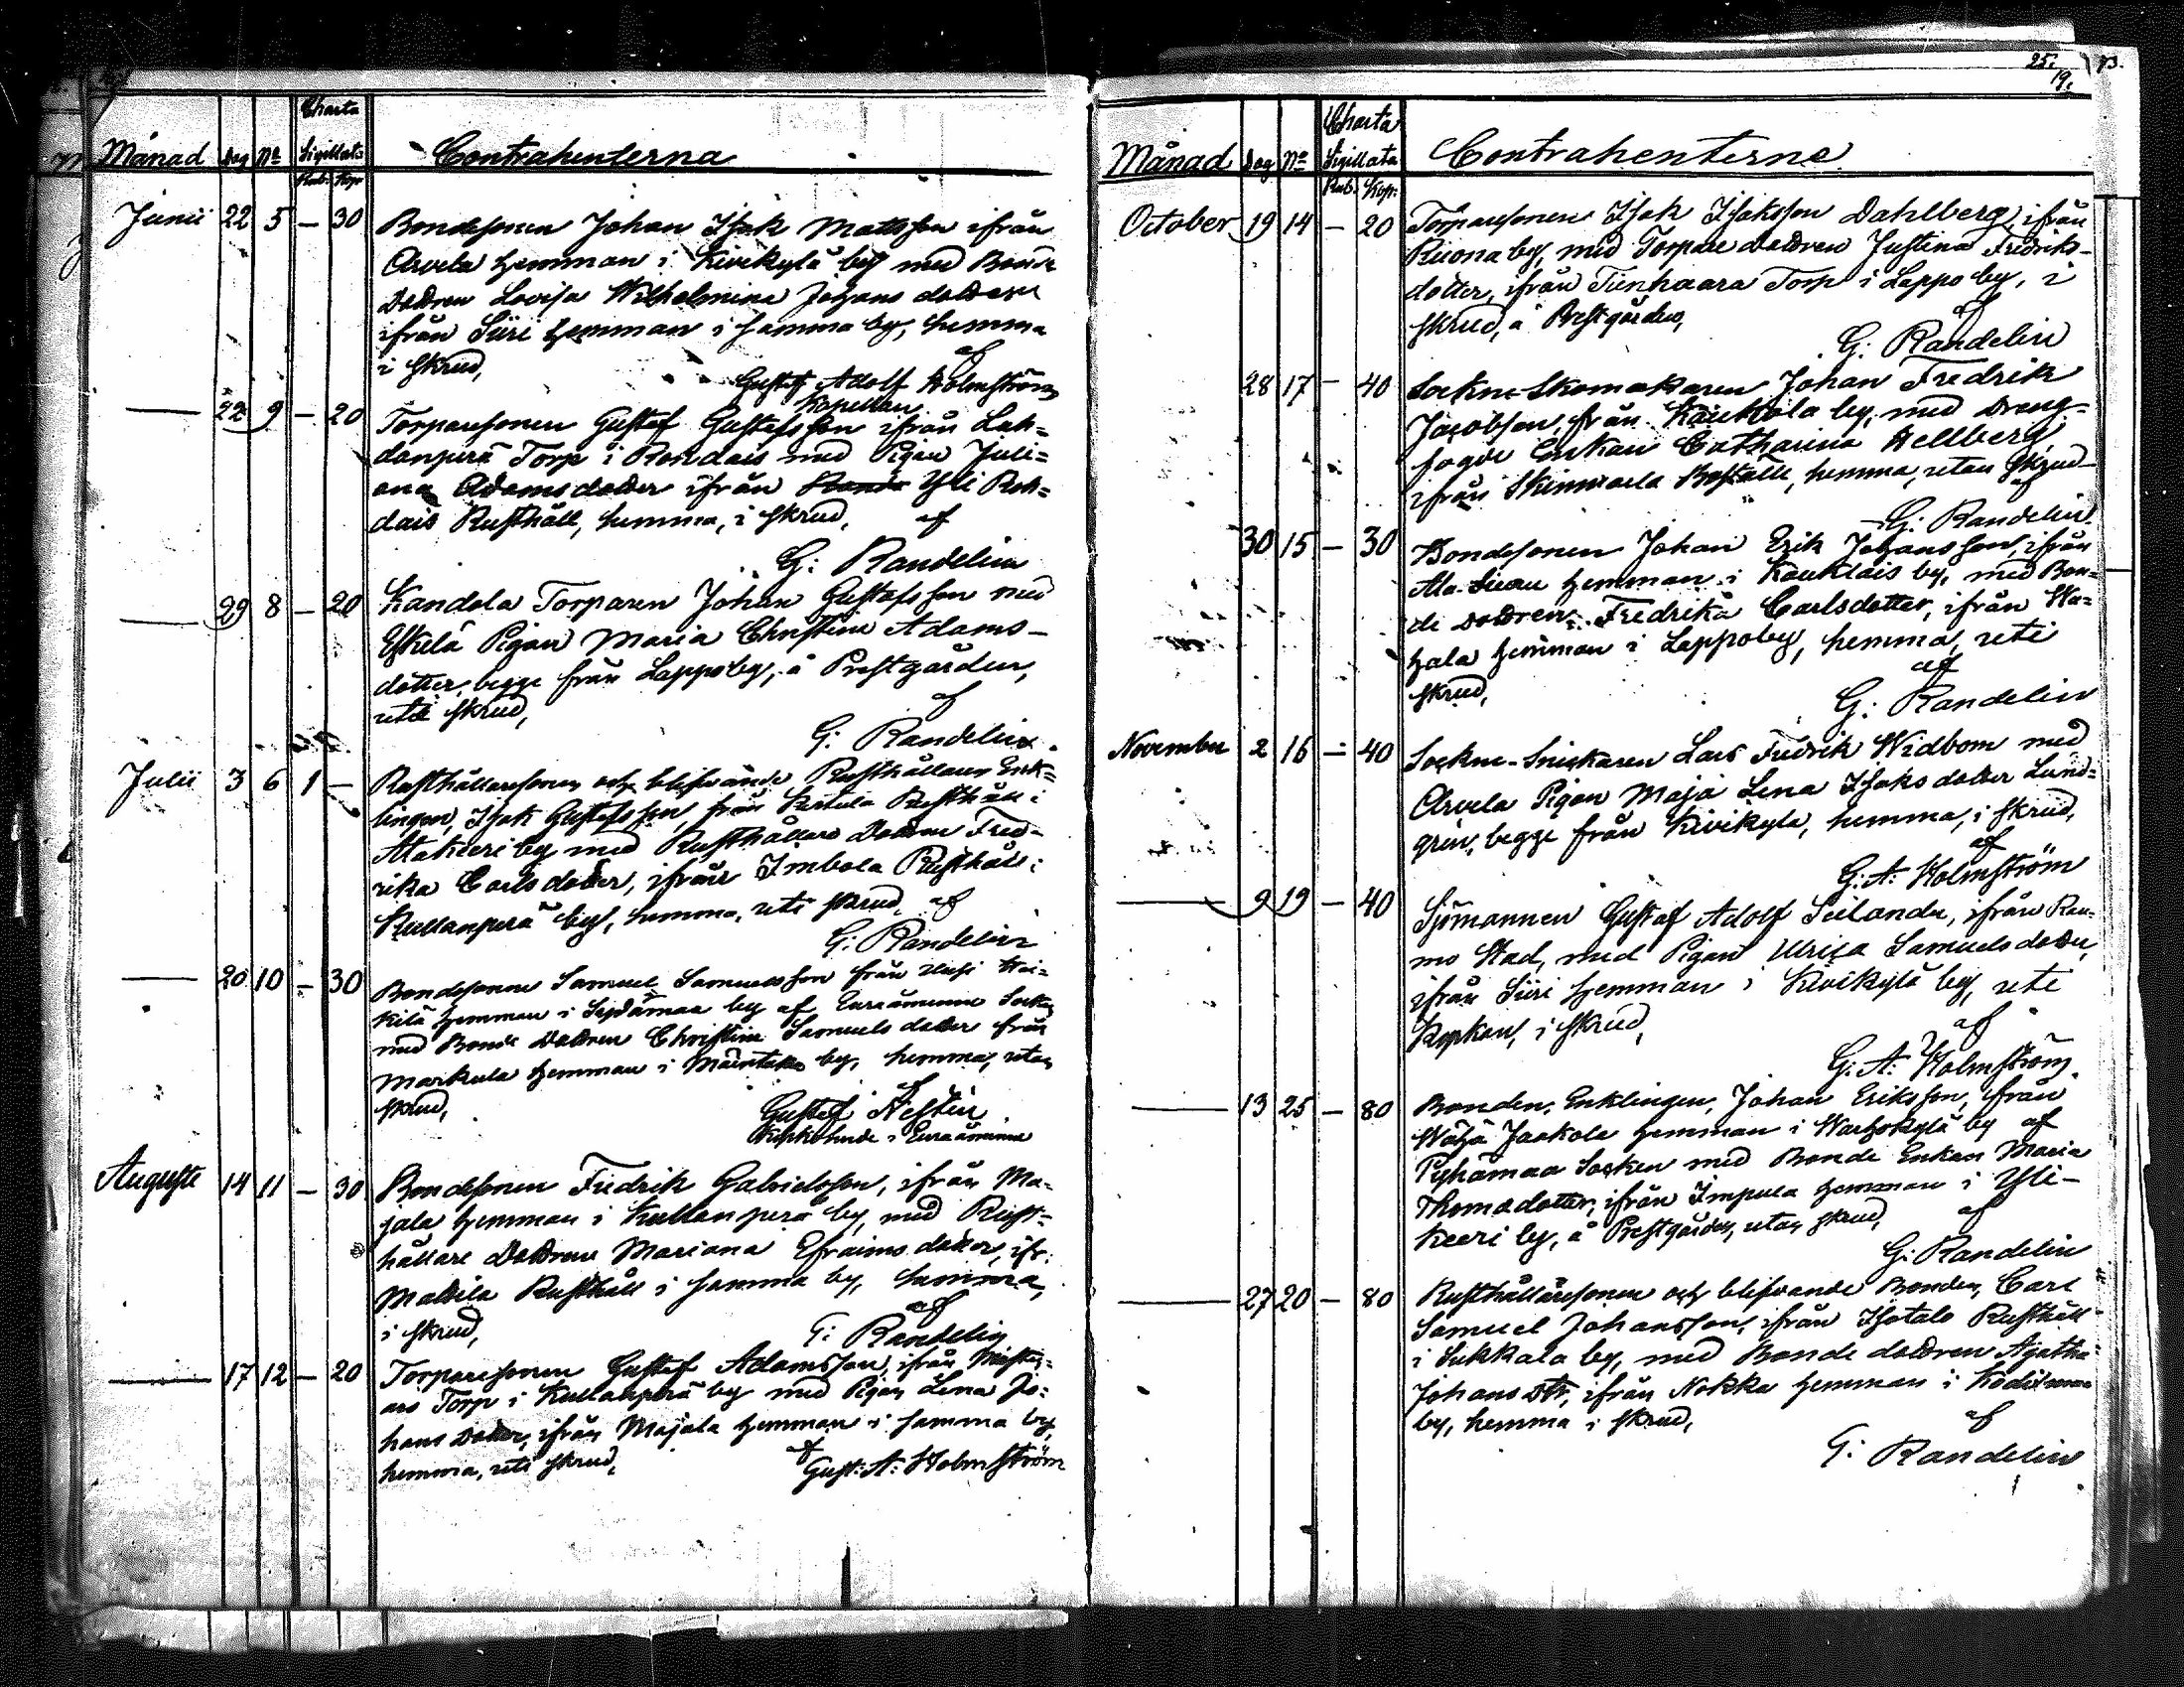 Charta
Månad Dag No Sigillata Contrahenterna
Rub. Kop.
Junii 22 5 — 30 Bondesonen Johan Isak Mattsson ifrån
Arvela hemman i Kivikylä by med Bonde
Dottren Lovisa Wilhelmina Johans dotter
ifrån Siiri hemman i samma by, hemma
i skrud, af
Gustaf Adolf Holmström
Kapellan
— 22 9 — 20 Torparesonen Gustaf Gustafsson ifrån Lah=
danperä Torp i Rohdais med Pigan Juli=
ana Adamsdotter ifrån Yli Roh=
dais Rusthåll, hemma, i skrud, af
G: Randelin
— 29 8 — 20 Kandola Torparen Johan Gustafsson med
Eskelä Pigan Maria Christina Adams-
dotter, begge från Lappo by, å Prestgården,
utan skrud, af
G: Randelin
Julii 3 6 1 — Rusthållaresonen och blifvande Rusthållaren Enk=
lingen, Isak Gustafsson, från Rusthåll i
Alakieri by med Rusthållare Dottren Fred-
rika Carlsdotter, ifrån Imbola Rusthåll i
Kullanperä by, hemma, uti skrud, af
G: Randelin
— 20 10 — 30 Bondesonen Samuel Samuelsson från Uusi Hei=
kilä hemman i Sydämaa by af Euraåminne Socken
med Bonde Dottren Christina Samuels dotter från
Markula hemman i by, hemma, utan
skrud, af
Gustaf Hestin
Kyrkoherde i Euraåminne
Auguste 14 11 — 30 Bondesonen Fredrik Gabrielsson, ifrån Ma=
jala hemman i Kullanperä by, med Rust=
hållare Dottren Mariana Efraims dotter, ifr:
Mattila Rusthåll i samma by, hemma,
i skrud, af
G: Randelin
— 17 12 — 20 Torparesonen Gustaf Adamsson, ifrån
Torp i Kullanperä by med Pigan Lena Jo=
hans dotter, ifrån Majala hemman i samma by,
hemma, uti skrud, af
Gust: A: Holmström
25. 73.
19.
Charta
Månad Dag No Sigillata Contrahenterne
Rub. Kop:
October 19 14 — 20 Torparesonen Isak Isaksson Dahlberg, ifrån
Ruona by, med Torpare dottren Justina Fredriks-
dotter, ifrån Tiinhaara Torp i Lappo by, i
skrud, å Prestgården, af
G: Randelin
28 17 — 40 Sockne-Skomakaren Johan Fredrik
Jacobsson, från Kauttola by, med Dreng-
fogde Enkan Catharina Hellberg
ifrån Boställe, hemma, utan skrud
af
G: Randelin
30 15 — 30 Bondesonen Johan Erik Johansson, ifrån
Ala-Sieau hemman i Kauklais by, med Bon=
de Dottren Fredrika Carlsdotter, ifrån Ha=
hala hemman i Lappo by, hemma, uti
skrud, af
G: Randelin
November 2 16 — 40 Sockne-Snickaren Lars Fredrik Widbom med
Arvela Pigan Maja Lena Isaks dotter Lund=
gren, begge från Kivikylä, hemma, i skrud,
af
G: A: Holmström
— 9 19 — 40 Sjömannen Gustaf Adolf Seilander, ifrån Rau-
mo Stad, med Pigan Ulrica Samuelsdotter,
ifrån Siiri hemman i Kivikylä by, uti
Kyrkan, i skrud, af
G: A: Holmström.
— 13 25 — 80 Bonden, Enklingen, Johan Eriksson, ifrån
Wähä Jaakola hemman i Warhokylä by af
Pyhämaa Socken med Bonde Enkan Maria
Thomasdotter, ifrån Impula hemman i Yli-
kieri by, å Prestgården, utan skrud, af
G: Randelin
— 27 20 — 80 Rusthållaresonen och blifvande Bonden, Carl
Samuel Johansson, ifrån Isotalo Rusthåll
i Sukkala by, med Bonde dottren Agatha
Johans Dtr, ifrån Nokka hemman i Kodisma
by, hemma i skrud, af
G: Randelin